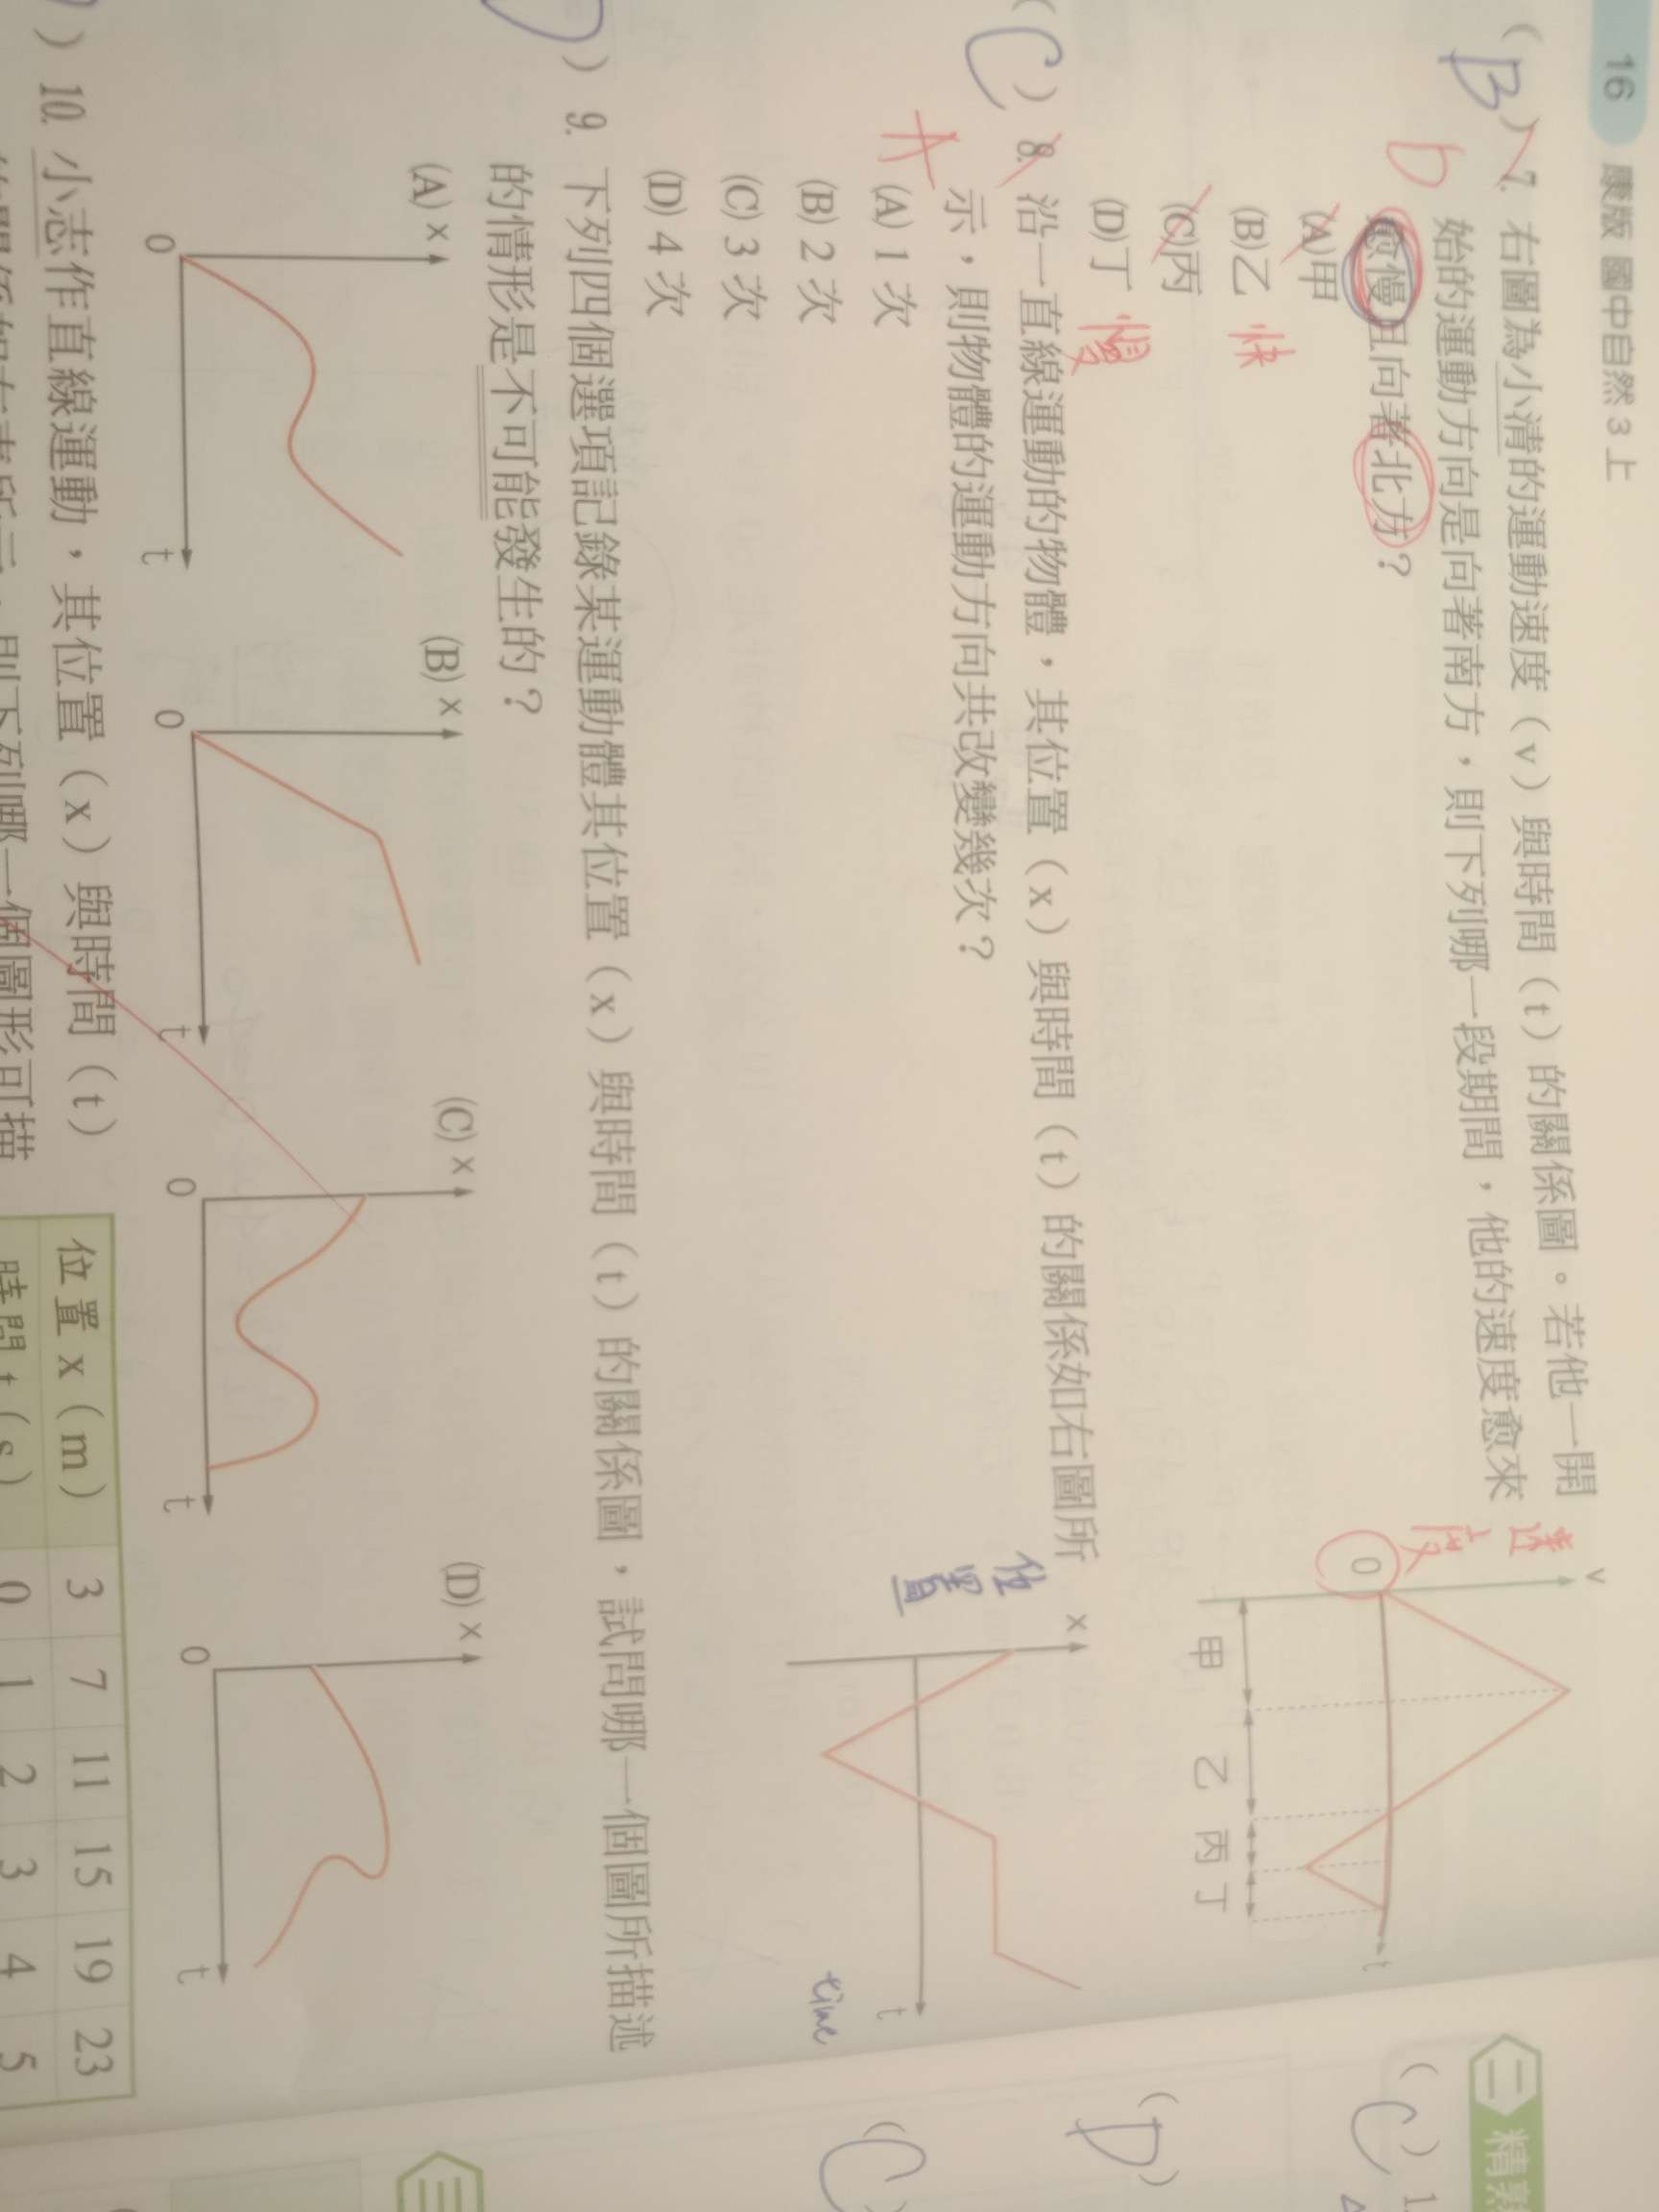 16 康版 國中自然3上
(B) 7. 右圖為小清的運動速度（v）與時間（t）的關係圖。若他一開
始的運動方向是向著南方，則下列哪一段期間，他的速度愈來
愈慢且向著北方？
D
(A)甲
(B)乙 快
(C)丙
(D)丁 慢
速度
v
0
t
甲 乙 丙 丁
(C) 8. 沿一直線運動的物體，其位置（x）與時間（t）的關係如右圖所
示，則物體的運動方向共改變幾次？
A
(A) 1 次
(B) 2 次
(C) 3 次
(D) 4 次
位置
x
t
time
) 9. 下列四個選項記錄某運動體其位置（x）與時間（t）的關係圖，試問哪一個圖所描述
的情形是不可能發生的？
(A) x
0
t
(B) x
0
t
(C) x
0
t
(D) x
0
t
) 10. 小志作直線運動，其位置（x）與時間（t）
則下列哪一個圖形可描
位置 x（m） 3 7 11 15 19 23
時間 t（s） 0 1 2 3 4 5
二 精熟
(C) 1.
(D)
(C)
三